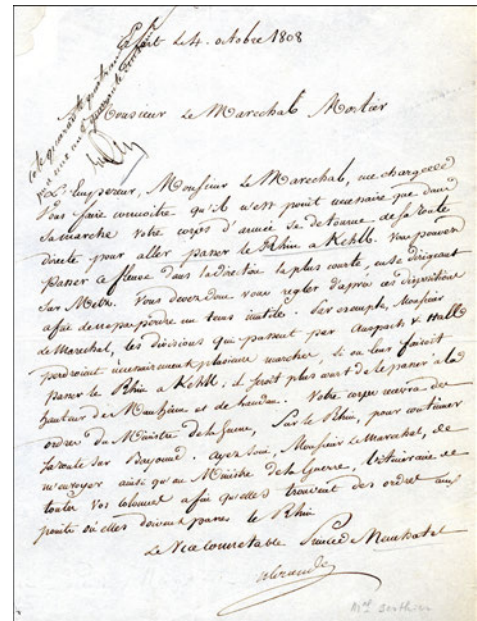 Le 4. octobre 1808
A Monsieur Le Marechal Mortier
L'Empereur, Monsieur Le Marechal, me charge de
Vous faire connoitre qu'il n'est point necessaire que dans
sa marche votre corps d'armée se detourne de sa route
directe pour aller passer le Rhin a Kehll. Vous pouvez
passer ce fleuve dans la direction la plus courte, en se dirigeant
sur Metz. Vous devez donc vous regler d'après ces dispositions
afin de ne pas perdre un tems inutile. Par exemple, Monsieur
Le Marechal, les divisions qui passent par Anspach & Hall
perdroient necessairement plusieurs marches, si on leur faisoit
passer le Rhin a Kehll: il seroit plus court de le passer a la
hauteur de Manheim et de Landau. Votre corps recevra des
ordres du Ministre de la Guerre, Sur le Rhin, pour continuer
sa route sur Bayonne. ayez soin, Monsieur Le Marechal, de
m'envoyer ainsi qu'au Ministre de la Guerre, l'itineraire de
toutes Vos colonnes afin qu'elles trouvent des ordres aux
points où elles doivent passer le Rhin
Le Vice Connetable Prince de Neuchatel
Alexandre
Mal Berthier